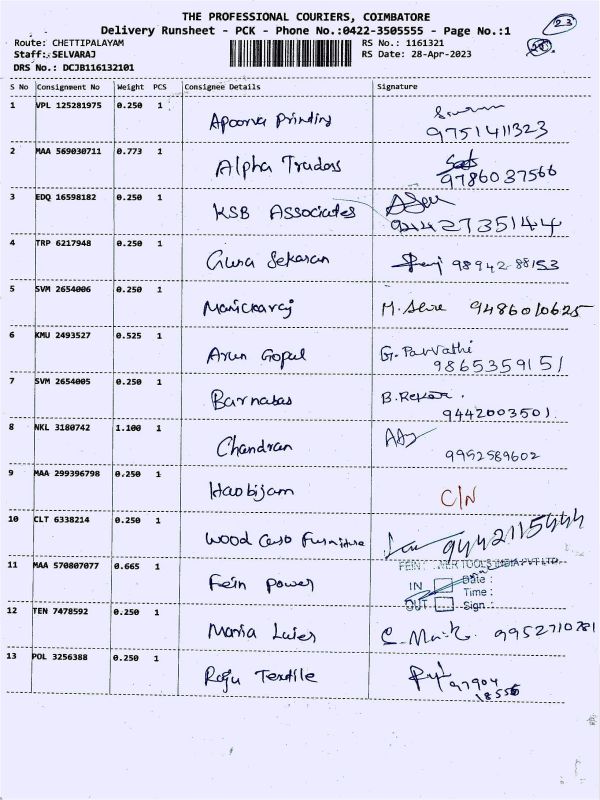 THE PROFESSIONAL COURIERS, COIMBATORE
Delivery Runsheet - PCK - Phone No.:0422-3505555 - Page No.:1
23
Route: CHETTIPALAYAM
RS No.: 1161321
Staff: SELVARAJ
RS Date: 28-Apr-2023
DRS No.: DCJB116132101
S No Consignment No Weight PCS Consignee Details Signature
1 VPL 125281975 0.250 1 Apoorva Printing
9751411323
2 MAA 569030711 0.773 1 Alpha Traders
9786037566
3 EDQ 16598182 0.250 1 KSB Associates
9442735144
4 TRP 6217948 0.250 1 Guna Sekaran 98942 88153
5 SVM 2654006 0.250 1 Manickaraj M. 9486010625
6 KMU 2493527 0.525 1 Arun Gopal G. Parvathi
9865359151
7 SVM 2654005 0.250 1 Barnabas B.
9442003501
8 NKL 3180742 1.100 1 Chandran
9952589602
9 MAA 299396798 0.250 1 Haobijam C/N
10 CLT 6338214 0.250 1 Wood Furniture 9442115444
11 MAA 570807077 0.665 1 Fein Power
TOOLS INDIA PVT LTD.
IN Date :
Time :
OUT Sign :
12 TEN 7478592 0.250 1 Maria 9952710781
13 POL 3256388 0.250 1 Raju Textile 97904
18556